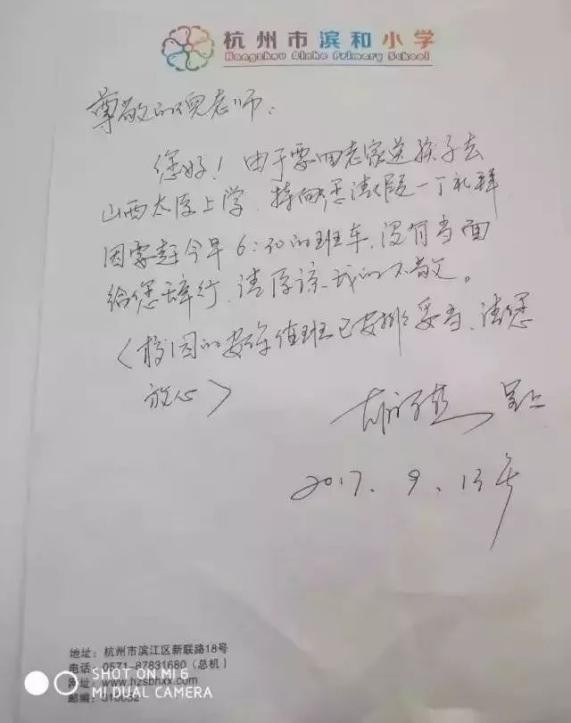 杭州市滨和小学
Hangzhou Binhe Primary School
尊敬的倪老师：
您好！由于要回老家送孩子去
山西太原上学，特向您请假一丁礼拜
因需赶今早6:30的班车，没有当面
给您辞行，请原谅我的不敬。
（校园的安全值班已安排妥当，请您
放心）
呈上
2017.9.13早
地址：杭州市滨江区新联路18号
电话：0571-87831680（总机）
www.hzsbhxx.com
邮编：310052
SHOT ON MI 6
MI DUAL CAMERA